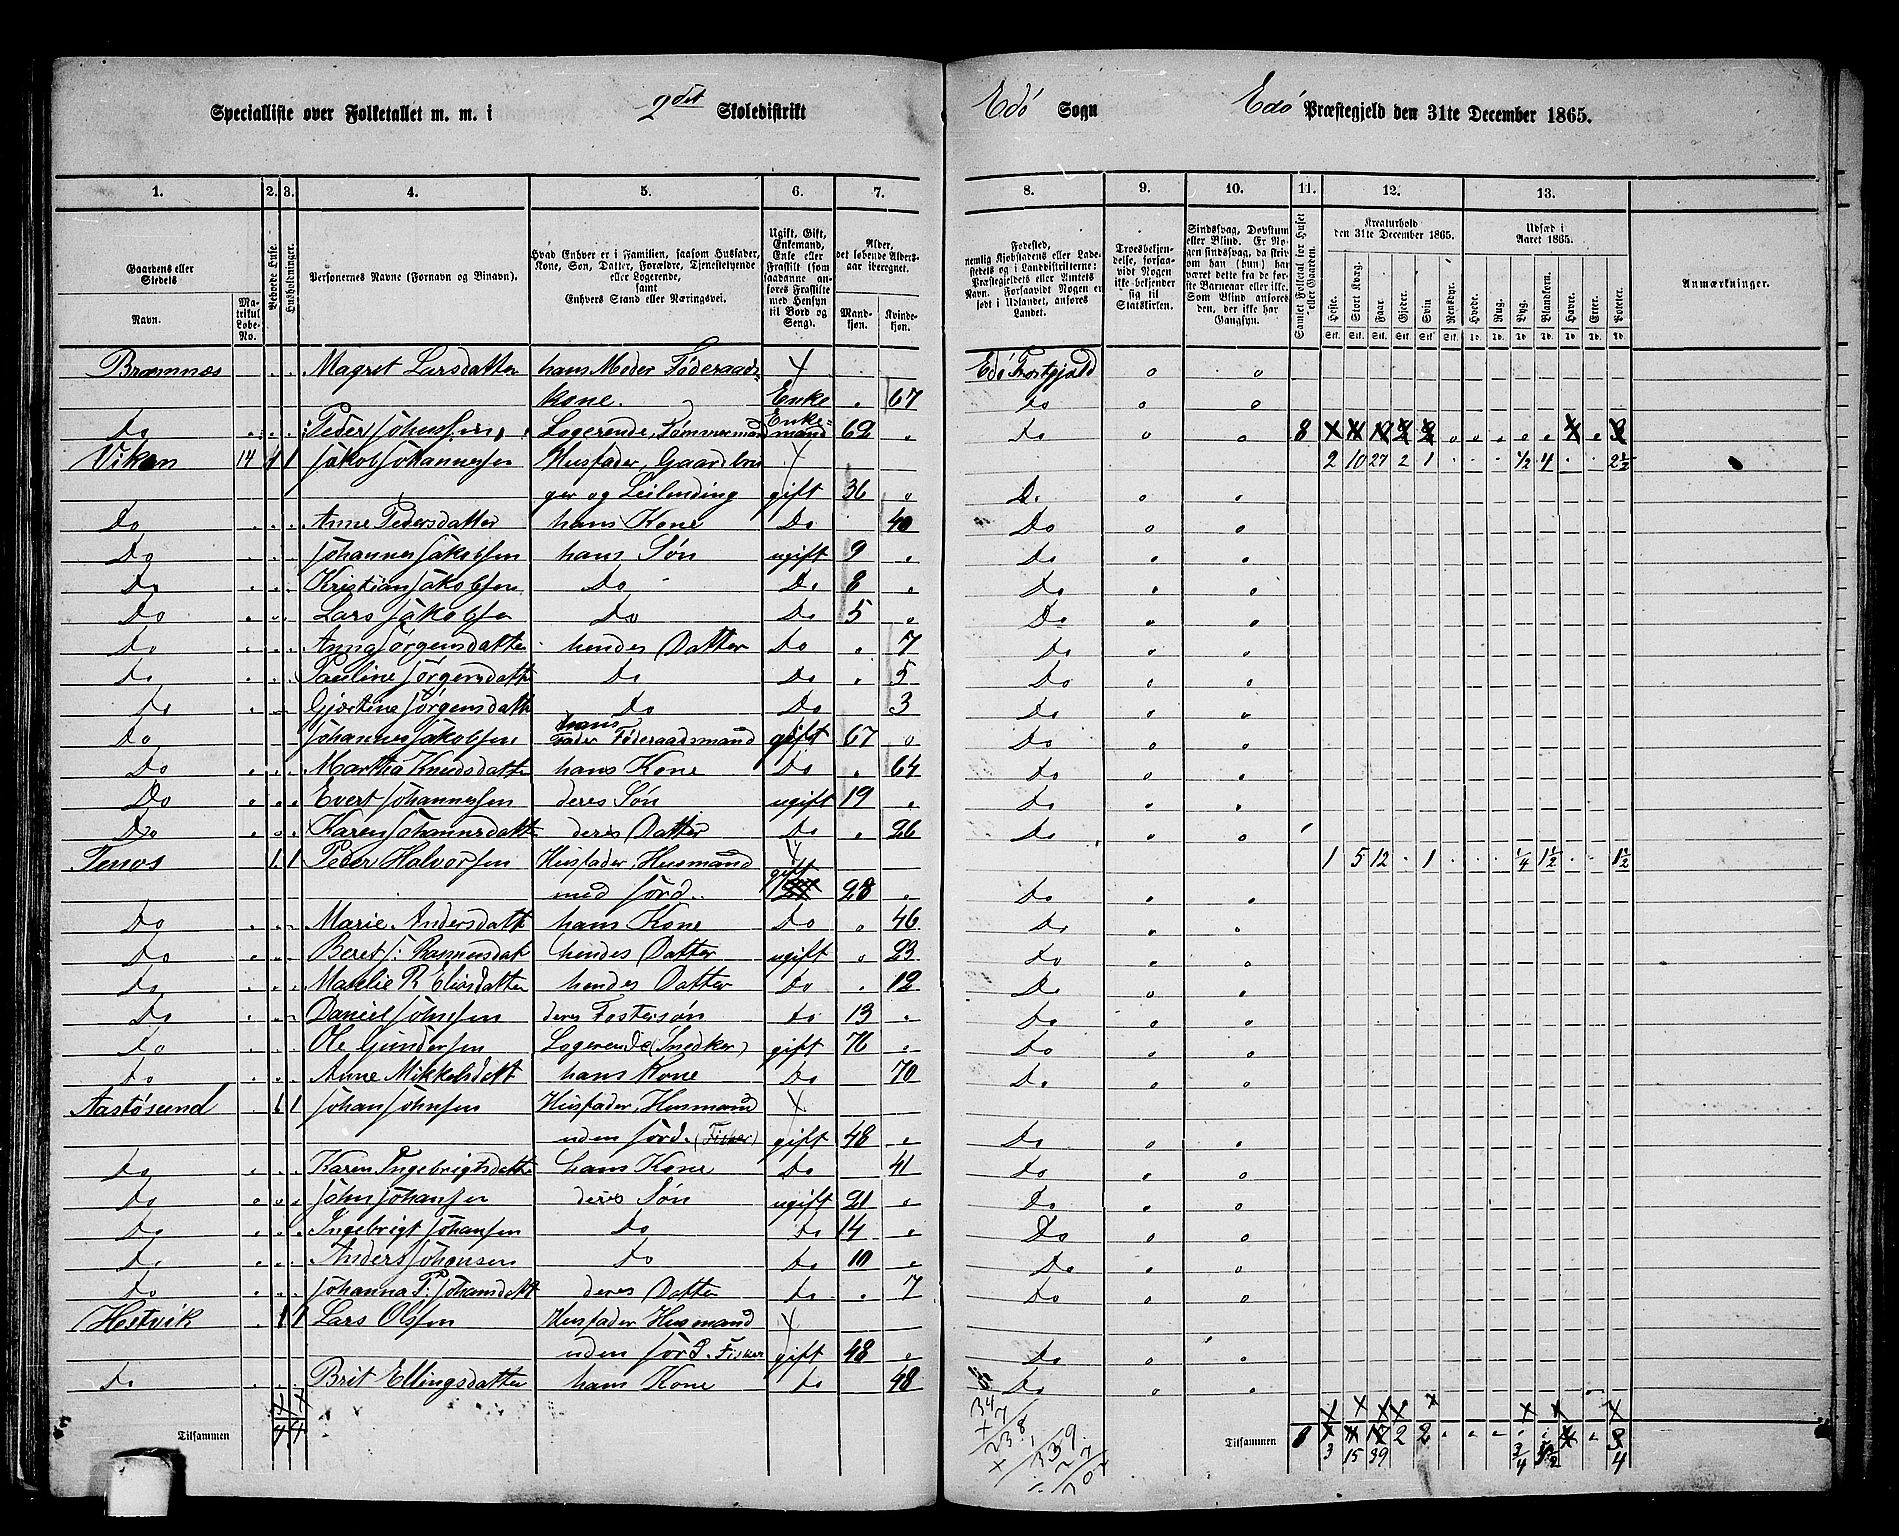 Specialliste over Folketallet m. m. i 2det Skoledistrikt
Edø Sogn Edø Præstegjeld den 31te December 1865.
1. 2. 3. 4. 5. 6. 7.
8. 9. 10. 11. 12. 13.
Gaardens eller Stedets Navn.
Matrikul Løbe-No.
Beboede Huse.
Husholdninger.
Personernes Navne (Fornavn og Binavn).
Hvad Enhver er i Familien, saasom Husfader, Kone, Søn, Datter, Forældre, Tjenestetyende eller Logerende, samt Enhvers Stand eller Næringsvei.
Ugift, Gift, Enkemand, Enke eller Fraskilt (som saadanne anføres Fraskilte med Hensyn til Bord og Seng).
Alder, det løbende Aldersaar iberegnet.
Mandkjøn. Kvindekjøn.
Fødested, nemlig Kjøbstadens eller Ladestedets og i Landdistrikterne: Præstegjeldets eller Amtets Navn. Forsaavidt Nogen er født i Udlandet, anføres Landet.
Troesbekjendelse, forsaavidt Nogen ikke bekjender sig til Statskirken.
Sindssvag, Døvstum eller Blind. Er Nogen sindssvag, da skrives om han (hun) har været dette fra de første Barneaar eller ikke. Som Blind anføres den, der ikke har Gangsyn.
Samlet Folketal for Huset eller Gaarden.
Kreaturhold den 31te December 1865.
Heste. Stort Kvæg. Faar. Gjeder. Svin. Rensdyr.
Udsæd i Aaret 1865.
Hvede. Rug. Byg. Blandkorn. Havre. Erter. Poteter.
Anmærkninger.
Bræmnæs Magret Larsdatter hans Moder Føderaads- Edø Prestgjæld
kone. Enke 67 do
do Peder Johnsen Logerende, Tømmermand Enkemand 62 Do 8
Viken 14 1 1 Jakob Johannessen Husfader, Gaardbru 2 10 27 2 1 1/2 4 2 1/2
ger og Leilending gift 36 Do
Do Anne Pedersdatter hans Kone Do 40 Do
Do Johannes Jakobsen hans Søn ugift 9 Do
Do Kristian Jakobsen Do Do 8 Do
Do Lars Jakobsen Do Do 5 Do
Do Anna Jørgensdatter hendes Datter Do 7 Do
Do Pauline Jørgensdatt Do Do 5 Do
Do Gjærtine Jørgensdatt Do Do 3 Do
Do Johannes Jakobsen hans Fader Føderaadsmand gift 67 Do
Do Martha Knudsdatter hans Kone Do 64 Do
Do Evert Johannessen deres Søn ugift 19 Do
Do Karen Johannesdatt deres Datter Do 26 Do
Tenos 1 1 Peder Halvorsen Husfader, Husmand 1 5 12 1 1/4 1 1/2 1 1/2
med Jord. gift 28 Do
Do Marie Andersdatt hans Kone Do 46 Do
Do Beret J: Rasmusdat hendes Datter ugift 23 Do
Do R Eliasdatter hendes Datter Do 12 Do
Do Daniel Johnsen deres Fostersøn do 13 Do
do Ole Gundersen Logerende (Snedker) gift 76 Do
do Anne Mikkelsdatt hans Kone Do 70 Do
Aastøsund 1 1 Johan Johnsen Husfader, Husmand
uden Jord. (Fisker) gift 48 Do
Do Karen Ingebrigtsdatte hans Kone Do 41 Do
Do John Johansen deres Søn ugift 21 Do
Do Ingebrigt Johansen Do do 14 Do
Do Anders Johansen do do 10 Do
do Johanna P: Johansdatt deres Datter do 7 Do
Hestvik 1 1 Lars Olsen Husfader Husmand
uden Jord. Fisker gift 48 Do
do Brit Ellingsdatter hans Kone do 48 Do
Tilsammen 4 4
Tilsammen 8 3 15 39 2 2 3/4 4